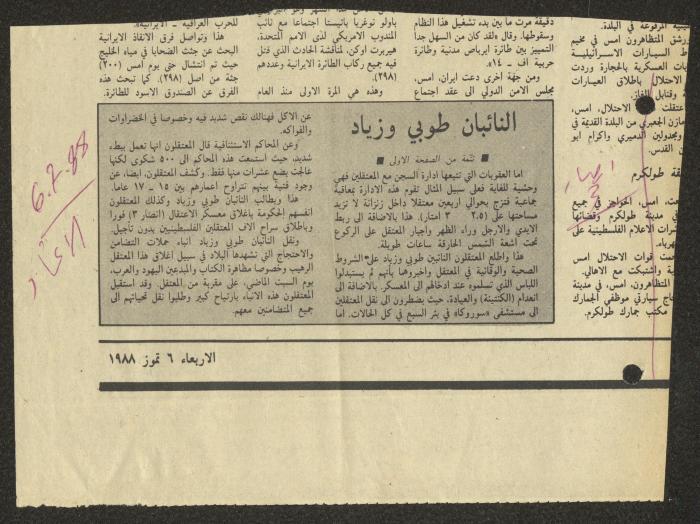 دقيقة مرت ما بين بدء تشغيل هذا النظام
وسقوطها. وقال «لقد كان من السهل جدا
التمييز بين طائرة ايرباص مدنية وطائرة
حربية اف - ١٤».
ومن جهة اخرى دعت ايران، امس،
مجلس الامن الدولي الى عقد اجتماع
باولو نوغيرا باتيستا اجتماعا مع نائب
المندوب الامريكي لدى الامم المتحدة،
هيربرت اوكن، لمناقشة الحادث الذي قتل
فيه جميع ركاب الطائرة الايرانية وعددهم
(٢٩٨).
وهذه هي المرة الاولى منذ العام
للحرب العراقية - الايرانية».
هذا وتواصل فرق الانقاذ الايرانية
البحث عن جثث الضحايا في مياه الخليج
حيث تم انتشال حتى يوم امس (٢٠٠)
جثة من اصل (٢٩٨). كما تبحث هذه
الفرق عن الصندوق الاسود للطائرة.
النائبان طوبي وزياد
■ تتمة من الصفحة الاولى ■
اما العقوبات التي تتبعها ادارة السجن مع المعتقلين فهي
وحشية للغاية فعلى سبيل المثال تقوم هذه الادارة بمعاقبة
جماعية فتزج بحوالي اربعين معتقلا داخل زنزانة لا تزيد
مساحتها على (٢،٥ × ٣ امتار). هذا بالاضافة الى ربط
الايدي والارجل وراء الظهر واجبار المعتقل على الركوع
تحت اشعة الشمس الحارقة ساعات طويلة.
هذا واطلع المعتقلون النائبين طوبي وزياد على الشروط
الصحية والوقائية في المعتقل واخبروها بأنهم لم يستبدلوا
اللباس الذي تسلموه عند ادخالهم الى المعسكر. بالاضافة الى
انعدام (الكنتينة) والعيادة، حيث يضطرون الى نقل المعتقلين
الى مستشفى «سوروكا» في بئر السبع في كل الحالات. اما
عن الاكل فهنالك نقص شديد فيه وخصوصا في الخضراوات
والفواكه.
وعن المحاكم الاستئنافية قال المعتقلون انها تعمل ببطء
شديد، حيث استمعت هذه المحاكم الى ٥٠٠ شكوى لكنها
عالجت بضع عشرات منها فقط. وكشف المعتقلون، ايضا، عن
وجود فتية بينهم تتراوح اعمارهم بين ١٥ - ١٧ عاما.
هذا ويطالب النائبان طوبي وزياد وكذلك المعتقلون
انفسهم الحكومة باغلاق معسكر الاعتقال (انصار ٣) فورا
وباطلاق سراح آلاف المعتقلين الفلسطينيين بدون تأجيل.
ونقل النائبان طوبي وزياد انباء حملات التضامن
والاحتجاج التي تشهدها البلاد في سبيل اغلاق هذا المعتقل
الرهيب وخصوصا مظاهرة الكتاب والمبدعين اليهود والعرب،
يوم السبت الماضي، على مقربة من المعتقل. وقد استقبل
المعتقلون هذه الانباء بارتياح كبير وطلبوا نقل تحياتهم الى
جميع المتضامنين معهم.
الاربعاء ٦ تموز ١٩٨٨
6.7.88
الاتحاد